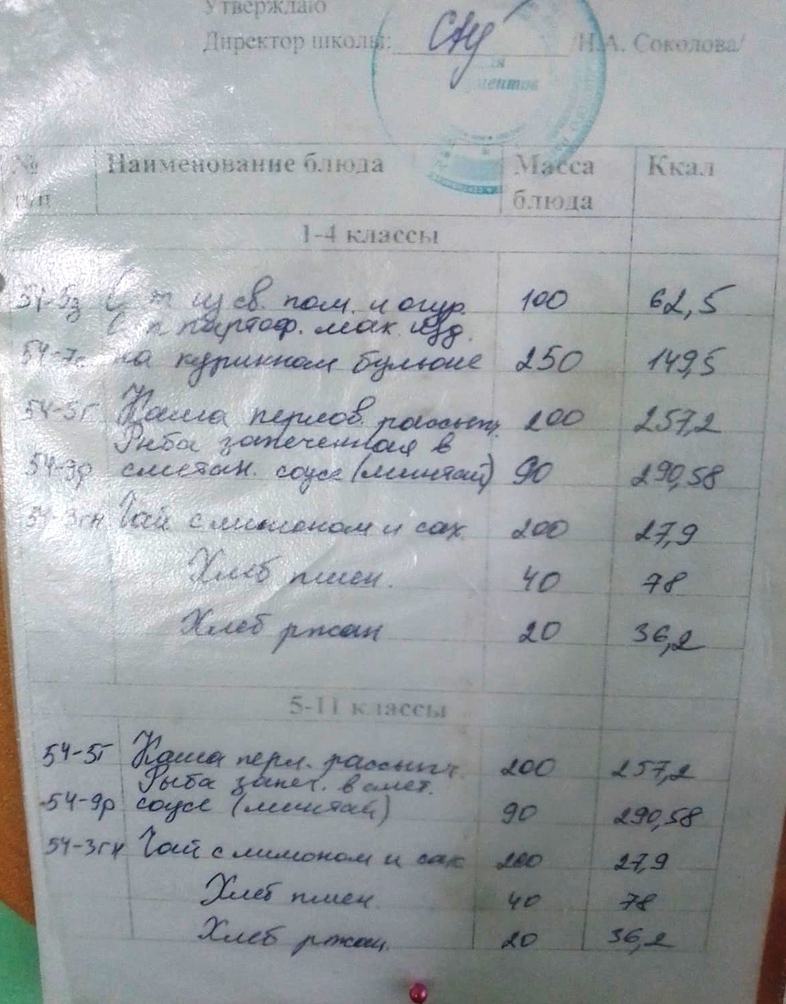 Утверждаю
Директор школы: /Н.А. Соколова/
ментов
№ п/п Наименование блюда Масса блюда Ккал
1-4 классы
54-5з из св. пом. и огур. 100 62,5
картоф. мак. изд.
54-7с на куринном бульоне 250 149,5
54-5г Каша перлов. рассып. 200 257,2
Рыба запеченная в
54-9р сметан. соусе (минтай) 90 290,58
54-3гн Чай с лимоном и сах. 200 27,9
Хлеб пшен. 40 78
Хлеб ржан 20 36,2
5-11 классы
54-5г Каша перл. рассыпч. 200 257,2
Рыба запеч. в смет.
54-9р соусе (минтай) 90 290,58
54-3гн Чай с лимоном и сах 200 27,9
Хлеб пшен. 40 78
Хлеб ржан. 20 36,2